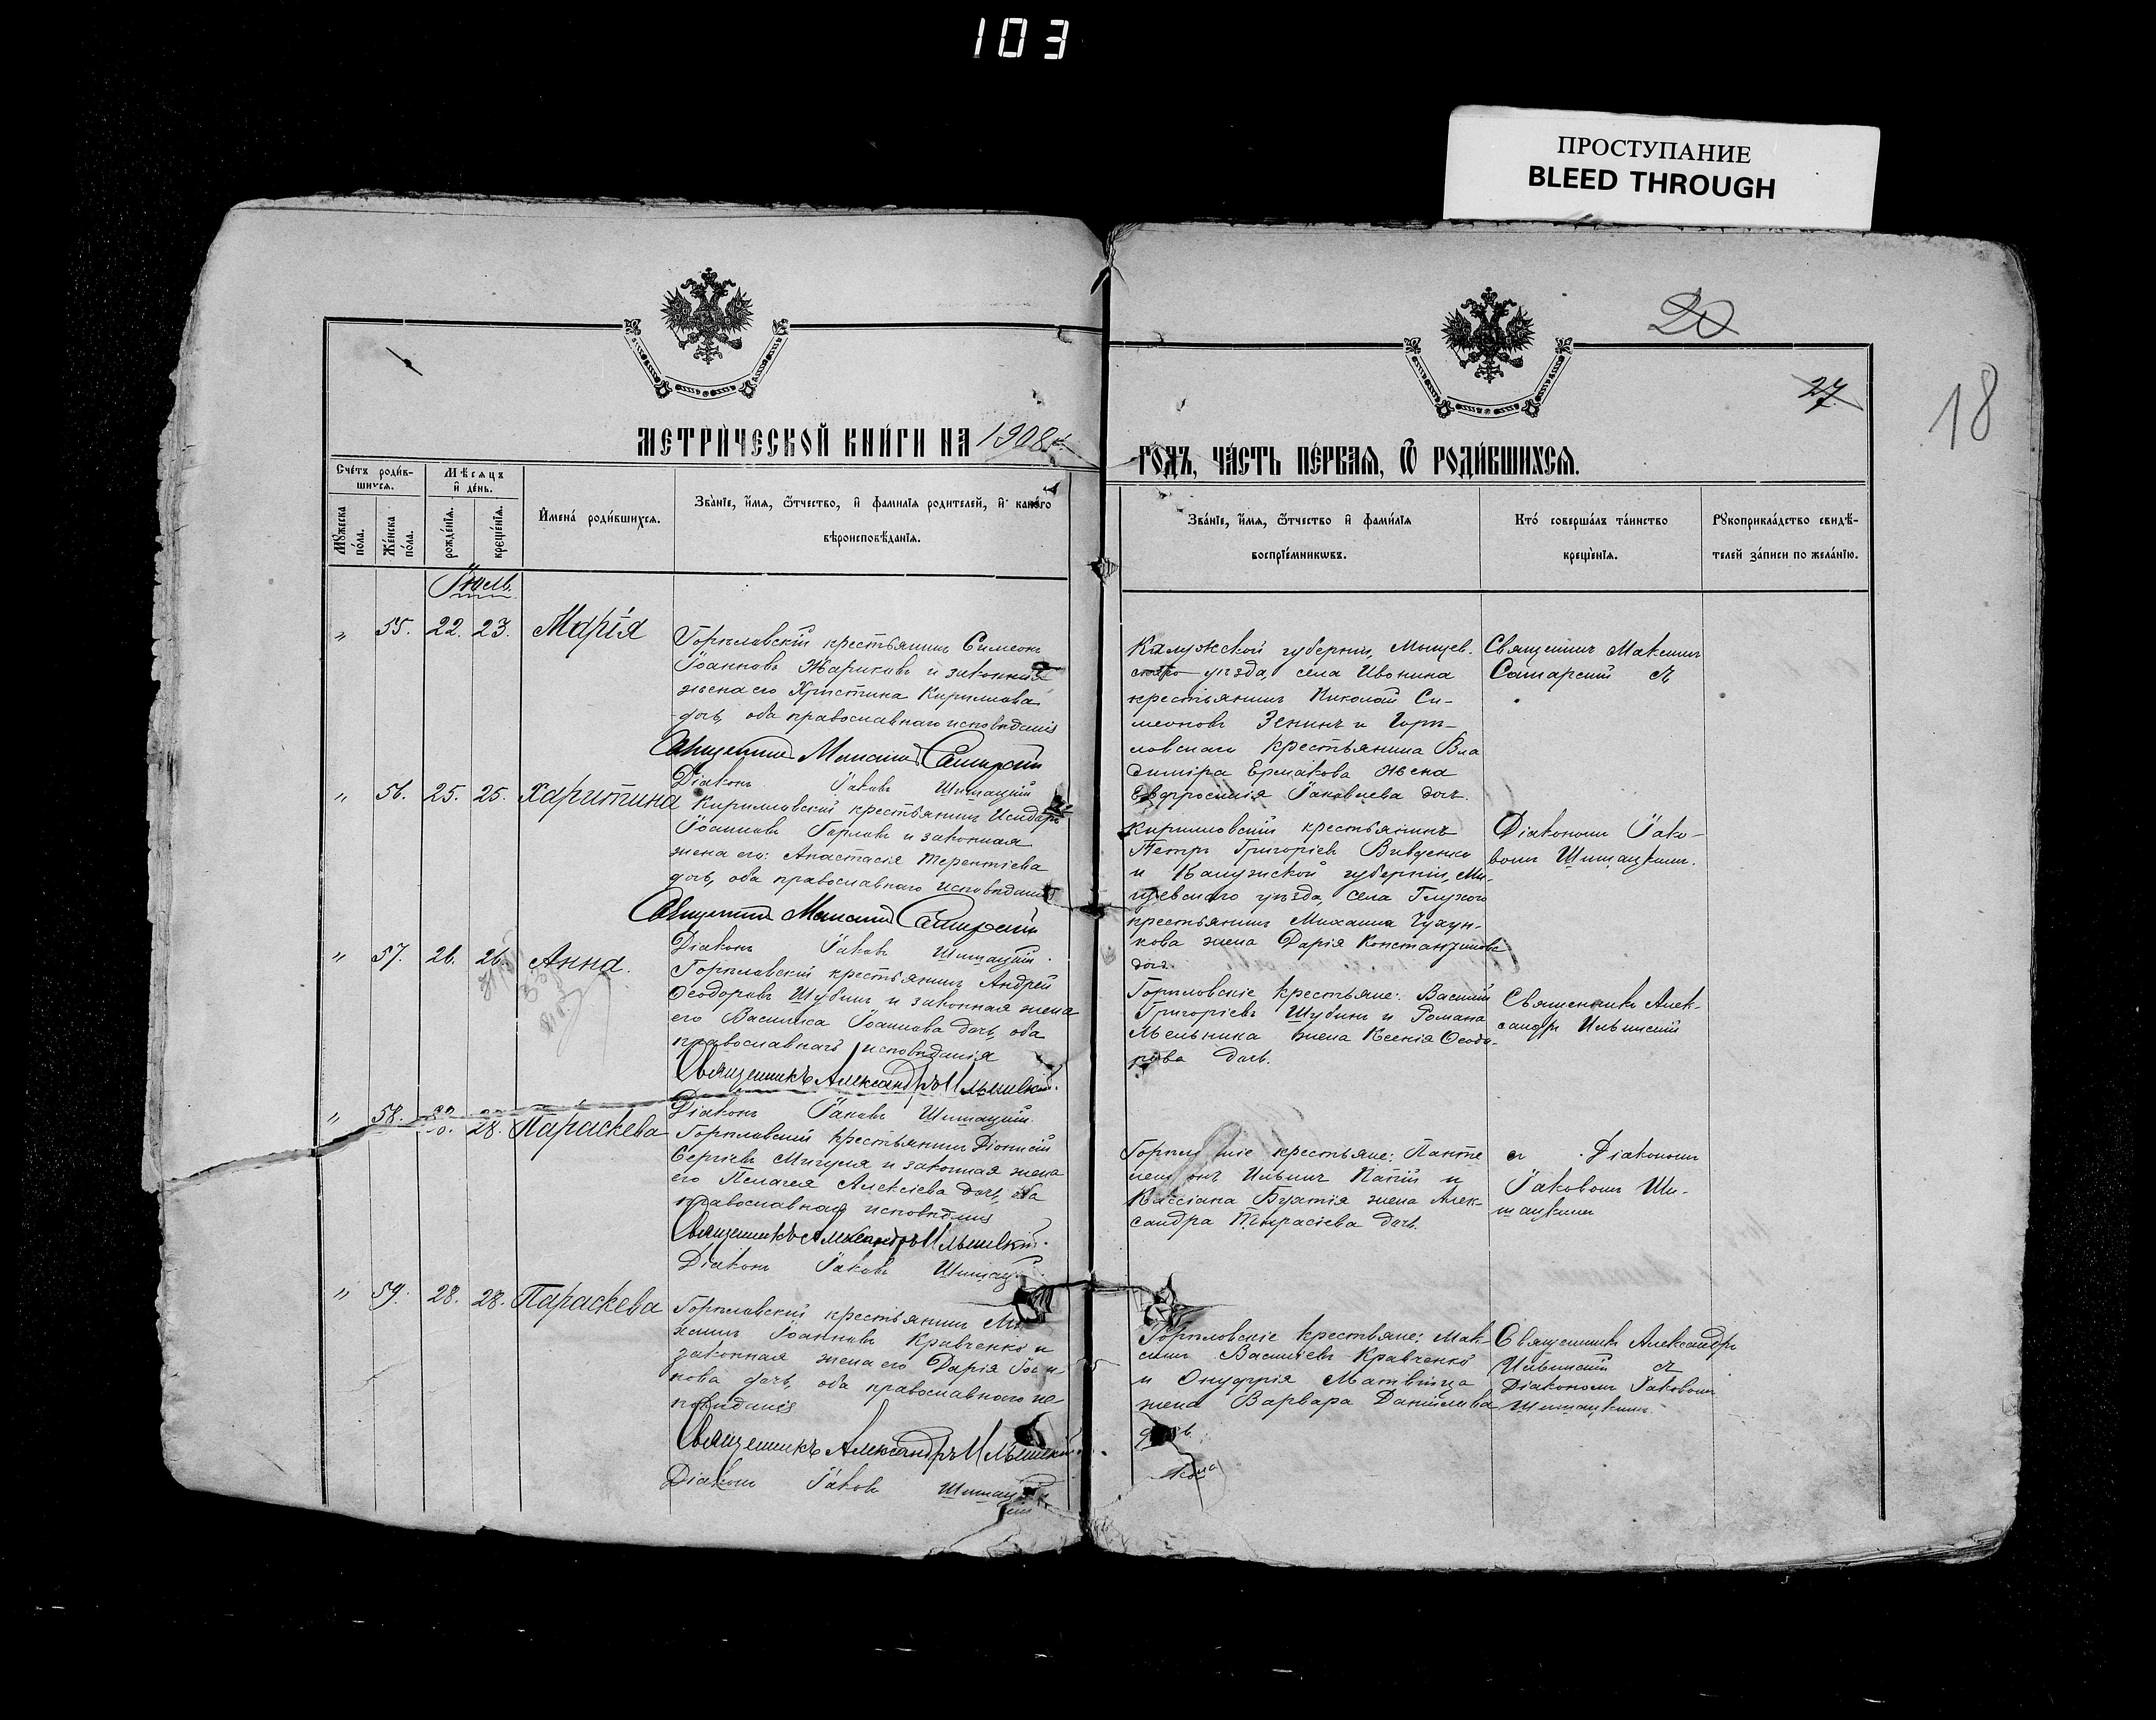 103
ПРОСТУПАНИЕ
BLEED THROUGH
20
27
18
МЕТРИ́ЧЕСКОЙ КНИ́ГИ НА 1908й
ГО́ДЪ, ЧА́СТЬ ПЕ́РВАѦ, Ѿ РОДИ́ВШИХСѦ.
Счётъ роди́в-
шихсѧ.
Мѣ́сѧцъ
и҆ де́нь.
Мꙋ́жеска
по́ла.
Же́нска
по́ла.
рожде́нїѧ.
креще́нїѧ.
И҆мена́ роди́вшихсѧ.
Зва́нїе, и҆́мѧ, ѻ҆́тчество, и҆ фами́лїѧ роди́телей, и҆ како́го
вѣроисповѣ́данїѧ.
Зва́нїе, и҆́мѧ, ѻ҆́тчество и҆ фами́лїѧ
воспрїе́мникѡвъ.
Кто́ соверша́лъ та́инство
креще́нїѧ.
Рꙋкоприкла́дство свидѣ́-
телей за́писи по жела́нїю.
Іюль.
" 55. 22. 23. Марія
Горѣловскій крестьянинъ Симеонъ
Іоанновъ Жариковъ и законная
жена его Христина Кириллова
дочь, оба православнаго исповѣданія
Священникъ Максимъ Самарскій
Діаконъ Іаковъ Шишацкій
Калужской губерніи, Мещев-
скаго уѣзда, села Ивонина
крестьянинъ Николай Си-
меоновъ Зенинъ и Горѣ-
ловскаго крестьянина Вла
димира Ермакова жена
Евфросинія Іаковлева дочь.
Священникъ Максимъ
Самарскій съ
" 56. 25. 25. Харитина
Кирилловскій крестьянинъ Исидоръ
Іоанновъ Горловъ и законная
жена его: Анастасія Терентіева
дочь, оба православнаго исповѣданія
Священникъ Максимъ Самарскій
Діаконъ Іаковъ Шишацкій.
Кирилловскій крестьянинъ
Петръ Григоріевъ Вивденко
и Калужской губерніи, Ме-
щевскаго уѣзда, села Глухого
крестьянина Михаила
кова жена Дарія Константинова
дочь.
Діакономъ Іако-
вомъ Шишацкимъ.
" 57. 26. 26. Анна.
Горѣловскій крестьянинъ Андрей
Ѳеодоровъ Шубинъ и законная жена
его Василиса Іоаннова дочь, оба
православнаго исповѣданія
Священникъ Александръ Ильинскій.
Діаконъ Іаковъ Шишацкій.
Горѣловскіе крестьяне: Василій
Григоріевъ Шубинъ и Романа
Мельника жена Ксенія Ѳеодо-
рова дочь.
Священникъ Алек-
сандръ Ильинскій
" 58. 28. Параскева
Горѣловскій крестьянинъ Діонисій
Сергіевъ Мигуля и законная жена
его Пелагея Алексіева дочь, оба
православнаго исповѣданія
Священникъ Александръ Ильинскій.
Діаконъ Іаковъ
крестьяне: Панте
Ильинъ Папій и
Кассіана жена Алек-
сандра Тарасіева дочь.
съ Діакономъ
Іаковомъ Ши-
шацкимъ
" 59. 28. 28. Параскева
Горѣловскій крестьянинъ Ми
хаилъ Іоанновъ Кравченко и
законная жена его Дарія
нова дочь, оба православнаго ис-
повѣданія
Священникъ Александръ Ильинскій
Діаконъ Іаковъ
Горѣловскіе крестьяне: Мак-
симъ Василіевъ Кравченко
и Онуфрія Матвійца
жена Варвара Даніилова
Священникъ Александръ
Ильинскій съ
Діакономъ Іаковомъ
Шишацкимъ.